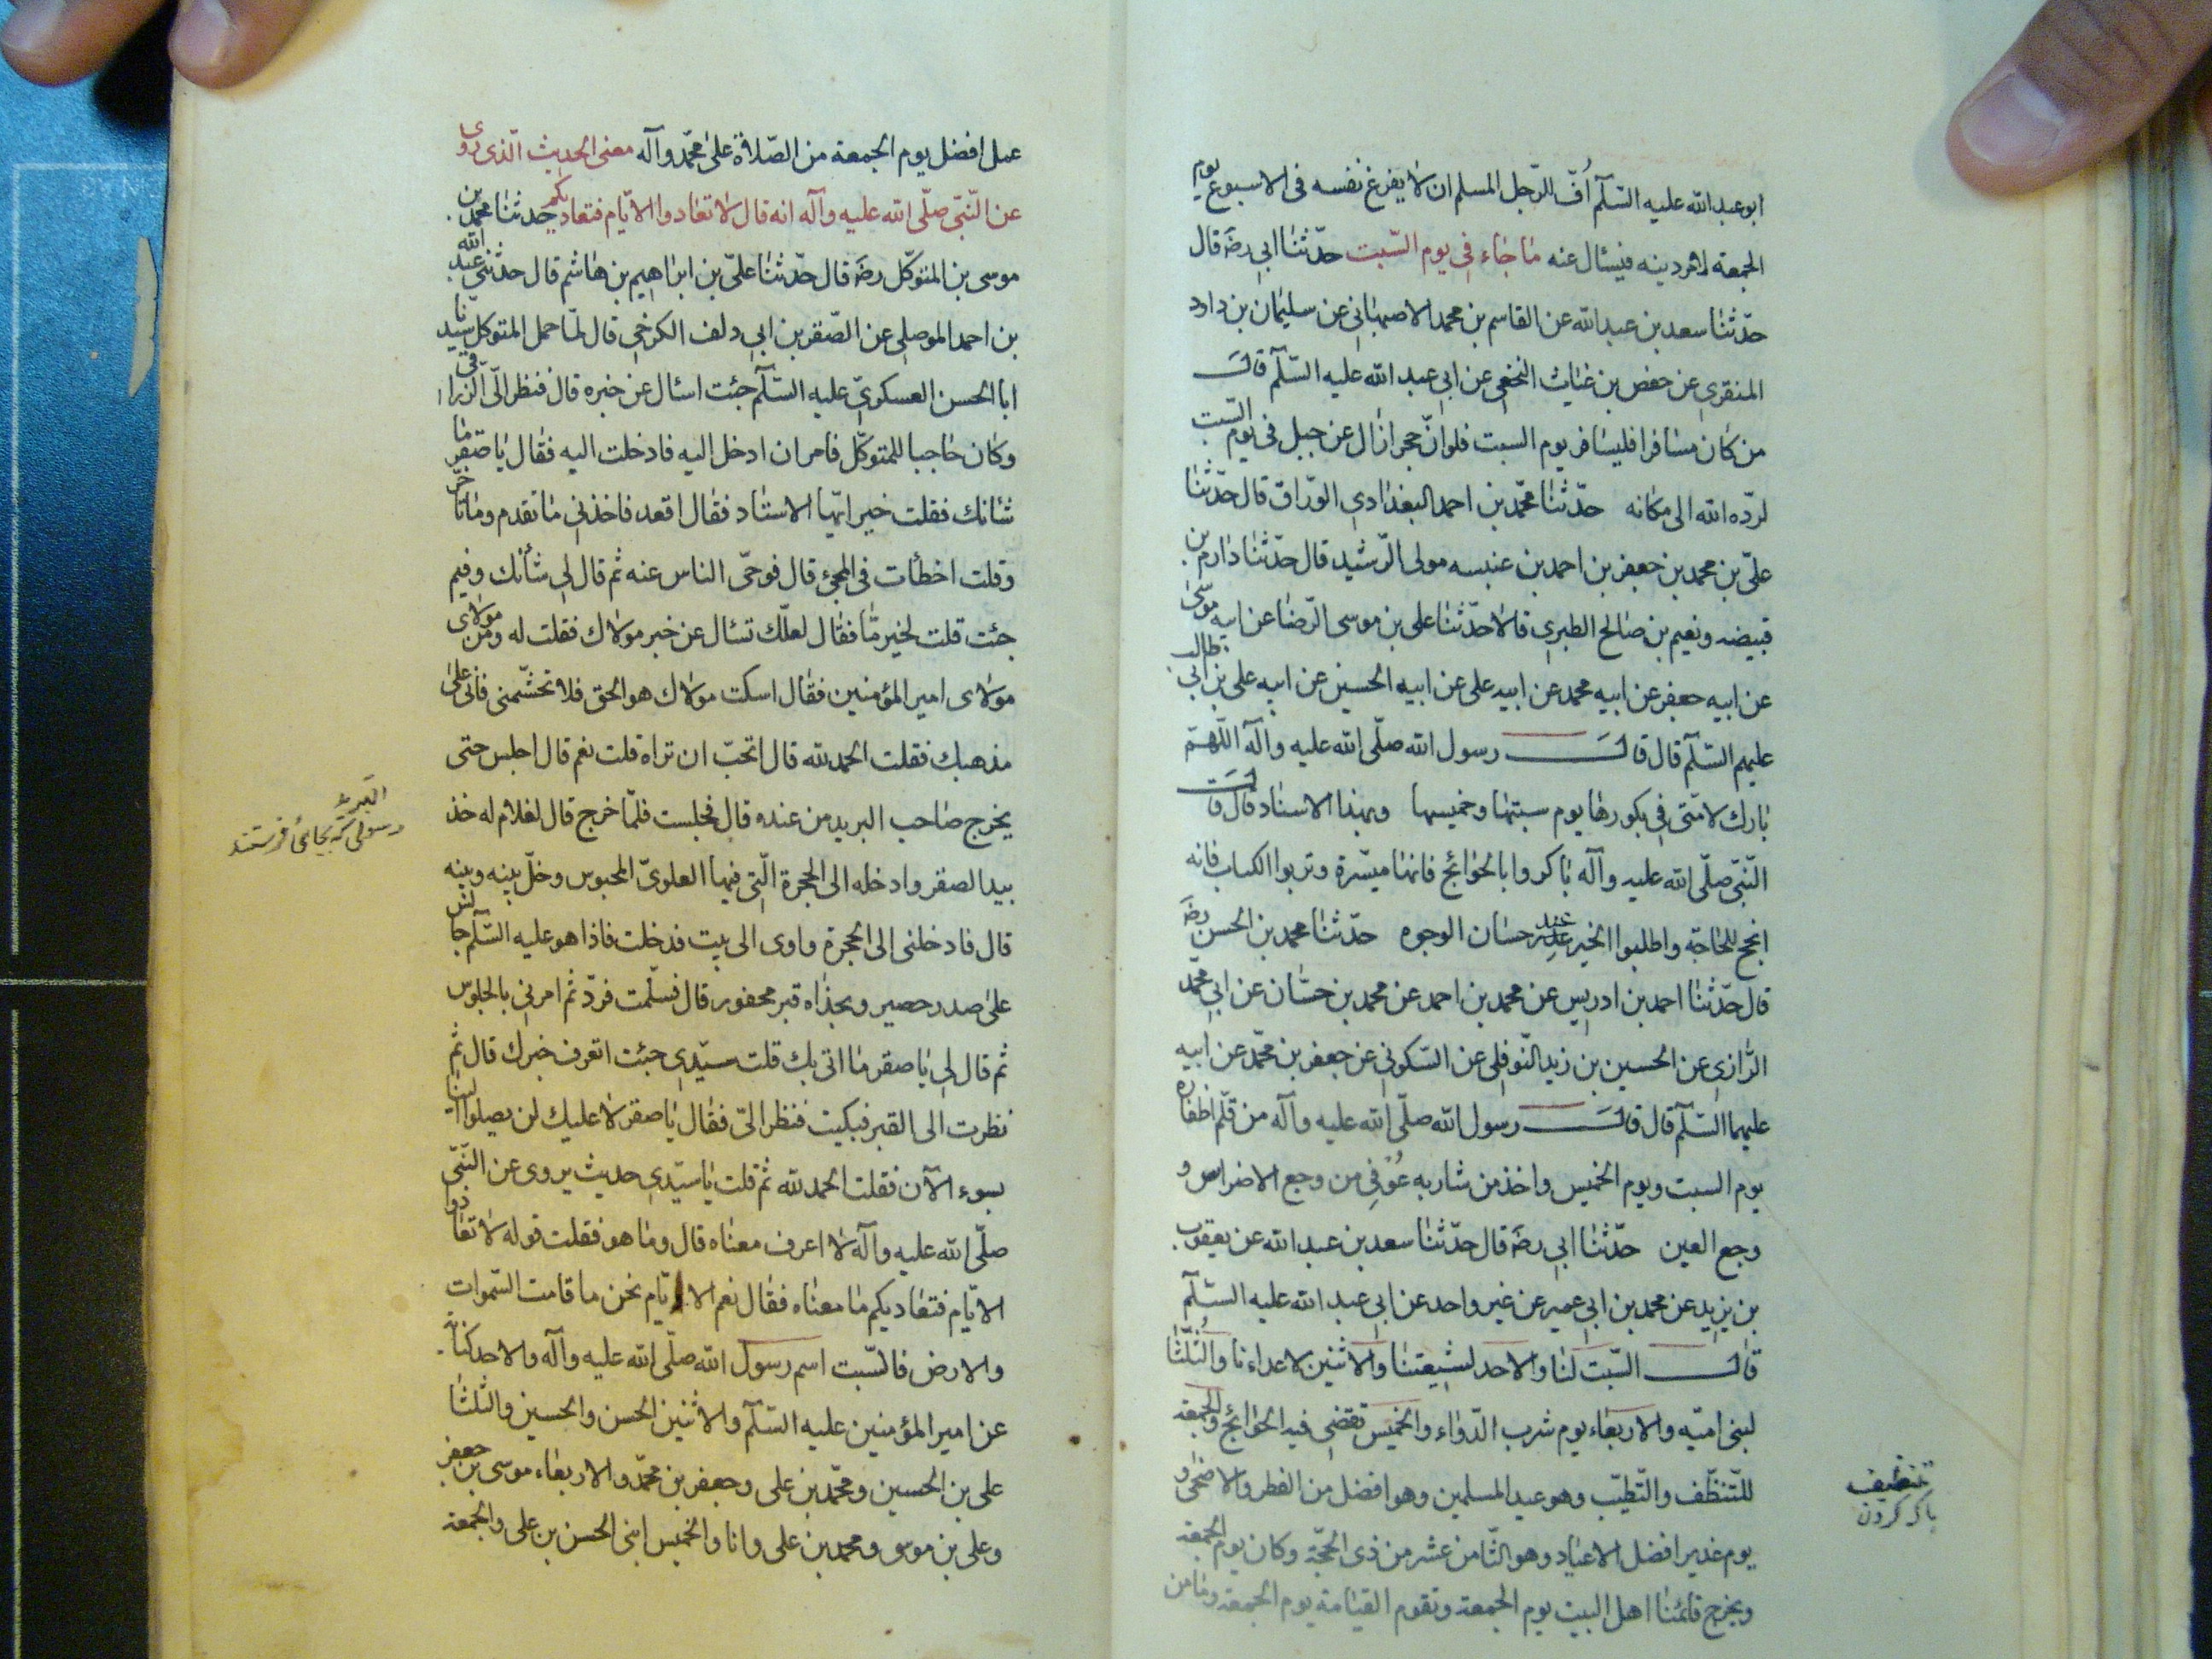 ابو عبد الله عليه السّلم اُفّ للرّجل المسلم ان لا يفرغ نفسه فى الاسبوع يوم
الجمعة لامر دينه فيسئال عنه ما جاء فى يوم السّبت حدّثنا ابى رضَ قال
حدّثنا سعد بن عبد الله عن القاسم بن محمد الاصبهانى عن سليمان بن داود
المنقرى عن حفص بن غياث النخعى عن ابى عبد الله عليه السّلم قال
من كان مسافرا فليسافر يوم السبت فلو انّ حجرا زال عن جبل فى يوم السّبت
لردّه الله الى مكانه حدّثنا محمّد بن احمد البغدادى الورّاق قال حدّثنا
علىّ بن محمد بن جعفر بن احمد بن عنبسه مولى الرّشيد قال حدّثنا دارم بن
قبيضه ونعيم بن صالح الطبرى قالا حدّثنا على بن موسى الرّضا عن ابيه موسى
عن ابيه جعفر عن ابيه محمد عن ابيه على عن ابيه الحسين عن ابيه على بن ابى طالب
عليهم السّلم قال قال رسول الله صلّى الله عليه وآله اللّهمّ
بارك لامّتى فى بكورها يوم سبتها وخميسها وبهذا الاسناد قال قال
النّبّى صلّى الله عليه وآله باكروا بالحوائج فانها ميسّرة وتربوا الكتاب فانه
انجح للحاجة واطلبوا الخير عند حسان الوجوه حدّثنا محمد بن الحسن رضَ
قال حدّثنا احمد بن ادريس عن محمد بن احمد عن محمد بن حسّان عن ابى محمّد
الرّازى عن الحسين بن زيد النّوفلى عن السّكونى عن جعفر بن محمّد عن ابيه
عليهما السّلم قال قال رسول الله صلّى الله عليه وآله من قلّم اظفاره
يوم السبت ويوم الخميس واخذ من شاربه عُوفِى من وجع الاضراس و
وجع العين حدّثنا ابى رضَ قال حدّثنا سعد بن عبد الله عن يعقوب
بن يزيد عن محمد بن ابى عمير عن غير واحد عن ابى عبد الله عليه السّلم
قال السّبت لنا والاحد لشيعتنا والاثنين لاعداءنا والثّلثا
لبنى اميّه والاربعاء يوم شرب الدّواء والخميس تقضى فيه الحوائج والجمعة
للتّنظّف والتّطيّب وهو عيد المسلمين وهو افضل من الفطر والاضحى و
يوم غدير افضل الاعياد وهو الثّامن عشر من ذى الحجّة وكان يوم الجمعة
ويخرج قائمنا اهل البيت يوم الجمعة وتقوم القيامة يوم الجمعة وما من
تنظيف
پاك كردن
عمل افضل يوم الجمعة من الصّلاة على محمّد وآله معنى الحديث الّذى روى
عن النّبّى صلّى الله عليه وآله انه قال لا تعادوا الايّام فتعاديكم حدثنا محمد بن
موسى بن المتوكّل رضَ قال حدّثنا علىّ بن ابراهيم بن هاشم قال حدّثنى عبد الله
بن احمد الموصلى عن الصّقر بن ابى دلف الكرخى قال لمّا حمل المتوكل سيّدنا
ابا الحسن العسكرىّ عليه السّلم جئت اسئال عن خبره قال فنظر الىّ الزرافى
وكان حاجبا للمتوكّل فامر ان ادخل اليه فادخلت اليه فقال يا صقر ما
شانك فقلت خير ايّها الاستاد فقال اقعد فاخذنى ما تقدم وما تاخّر
وقلت اخطأت فى المجئ قال فوحّى الناس عنه ثم قال لى شأنك وفيم
جئت قلت لخير مّا فقال لعلّك تسئال عن خبر مولاك فقلت له ومن مولاى
مولاى امير المؤمنين فقال اسكت مولاك هو الحق فلا تحتشمنى فانى على
مذهبك فقلت الحمد لله قال اتحبّ ان تراه قلت نعم قال اجلس حتى
يخرج صاحب البريد من عنده قال فجلست فلمّا خرج قال لغلام له خذ
بيد الصقر وادخله الى الحجرة الّتى فيها العلوىّ المحبوس وخلّ بينه وبينه
قال فادخلنى الى الحجرة واوى الى بيت فدخلت فاذا هو عليه السّلم جالس
على صدر حصير وبحذاه قبر محفور قال فسلّمت فردّ ثم امرنى بالجلوس
ثم قال لى يا صقر ما اتى بك قلت سيّدى جئت اتعرف خبرك قال ثم
نظرت الى القبر فبكيت فنظر الىّ فقال يا صقر لا عليك لن يصلوا الينا
بسوء الآن فقلت الحمد لله ثم قلت يا سيّدى حديث يروى عن النّبّى
صلّى الله عليه وآله لا اعرف معناه قال وما هو فقلت قوله لا تعادوا
الايّام فتعاديكم ما معناه فقال نعم الايّام نحن ما قامت السّموات
والارض فالسّبت اسم رسول الله صلّى الله عليه وآله والاحد كناية
عن امير المؤمنين عليه السّلم والاثنين الحسن والحسين والثّلثا
على بن الحسين ومحمّد بن على وجعفر بن محمّد والاربعاء موسى بن جعفر
وعلى بن موسى ومحمد بن على وانا والخميس ابنى الحسن بن على والجمعة
البريد
رسولى كه بجائى فرستند